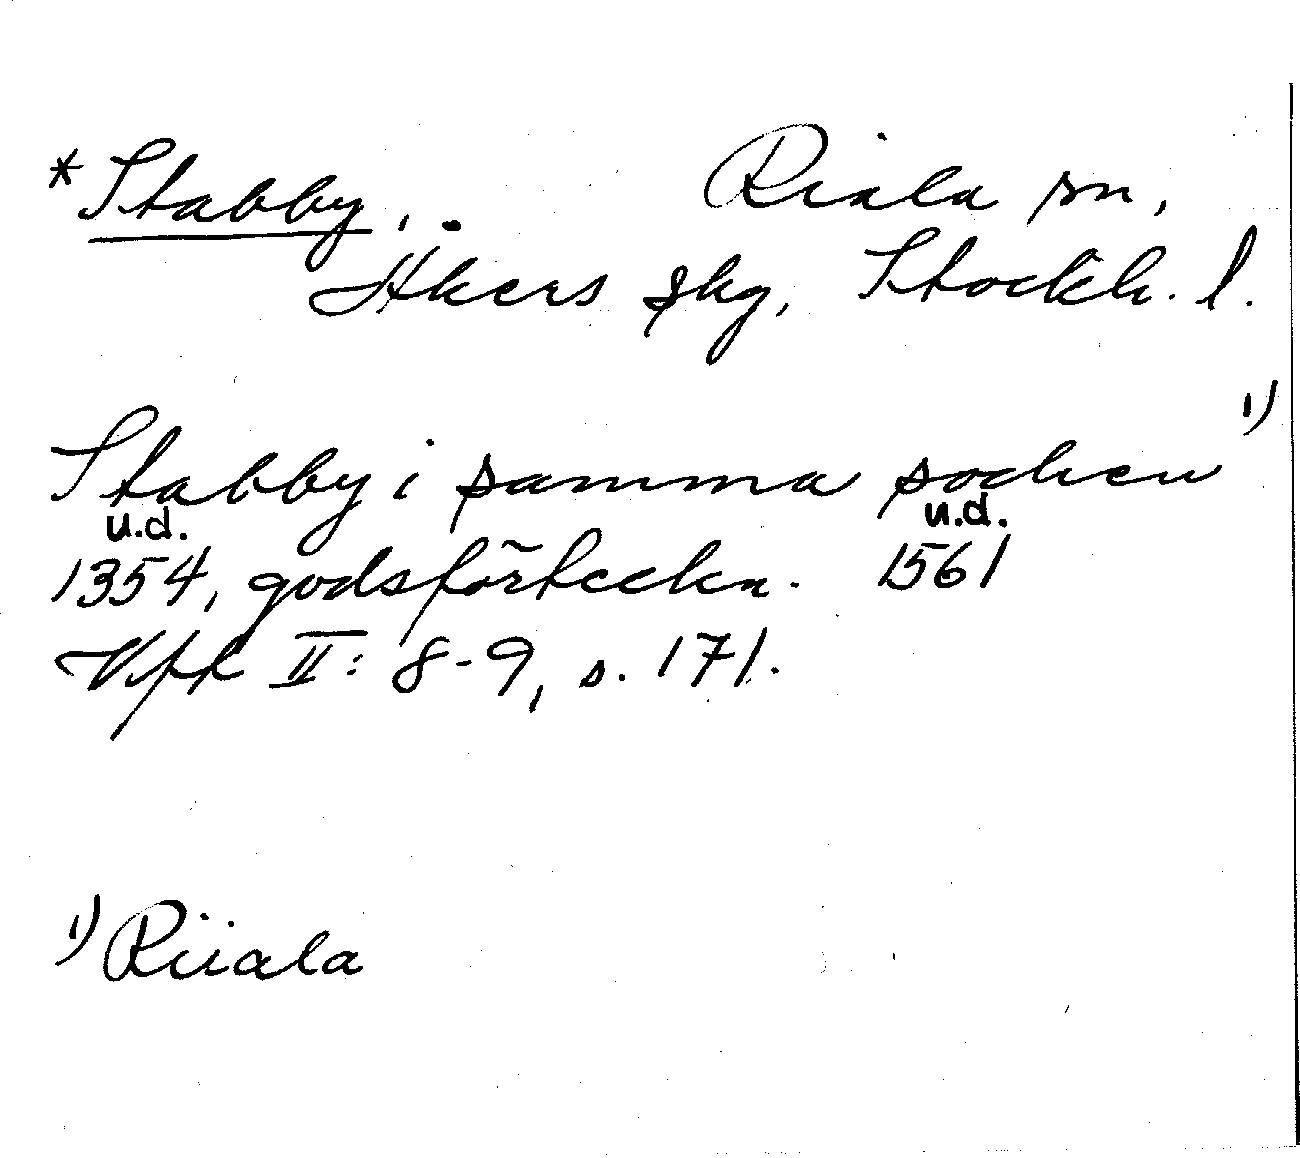 * Stabby, . Riala sn,
Åkers skg, Stockh. l.
Stabby i samma socken 1)
u.d. u.d.
1354, godsförteckn. 1561
Vfk II: 8-9, s. 171.
1) Riiala